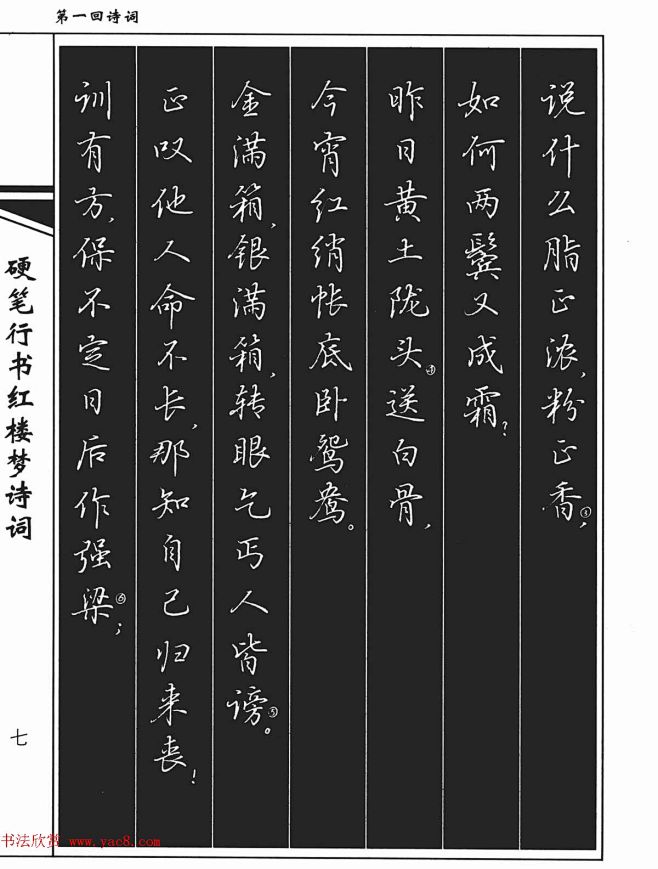 第一回诗词
说什么脂正浓,粉正香③,
如何两鬓又成霜?
昨日黄土陇头④送白骨,
今宵红绡帐底卧鸳鸯。
金满箱,银满箱,转眼乞丐人皆谤⑤。
正叹他人命不长,那知自己归来丧!
训有方,保不定日后作强梁⑥;
硬笔行书红楼梦诗词
七
书法欣赏 www.yac8.com